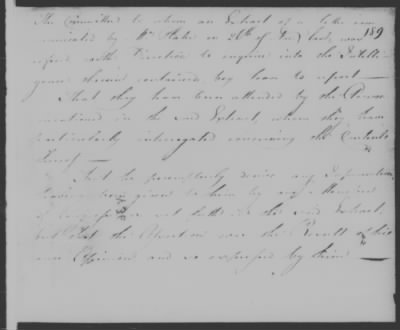 The Committee to whom an Extract of a letter com
189
municated by Mr on 26th of was
referred with Direction to enquire into the Intelli-
gence therein contained, beg leave to report —
That they have been attended by the Person
mentioned in the said Extract, whom they have
particularly interrogated concerning the Contents
thereof —
That he peremptorily denies any Information
having been given to him by any Member
of Congress as set forth in the said Extract,
but that the Assertion was the Result of his
own Opinion and so expressed by him —